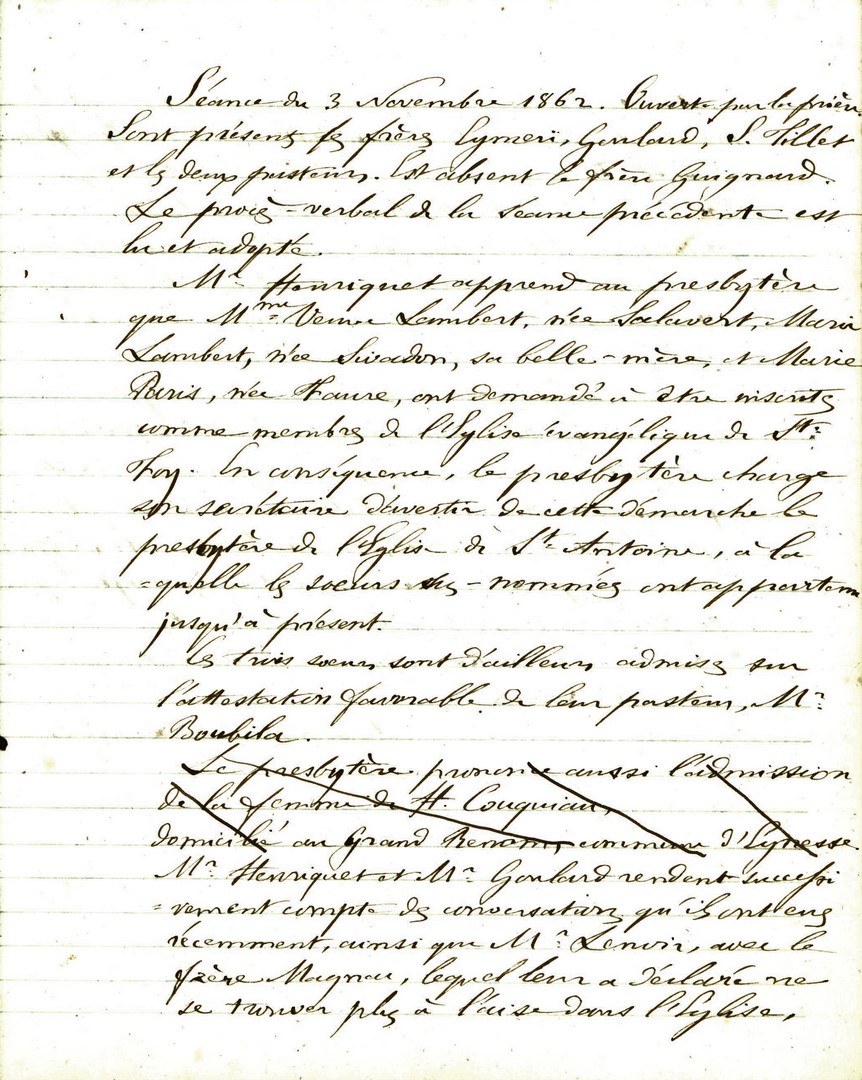 Séance du 3 Novembre 1862. Ouverte par la prière.
Sont présents les frères Eymeri, Goulard, S. Tillet
et les deux pasteurs. Est absent le frère Guignard.
Le procès-verbal de la séance précédente est
lu et adopté.
Mr. Henriquet apprend au presbytère
que Mme Veuve Lambert, née Salavert, Marie
Lambert, née Sivadon, sa belle-mère, et Marie
Paris, née Faure, ont demandé à être inscrites
comme membres de l'Eglise évangélique de Ste.
Foy. En conséquence, le presbytère charge
son secrétaire d'avertir de cette démarche le
presbytère de l'Eglise de St. Antoine, à la
=quelle les soeurs sus-nommées ont appartenu
jusqu'à présent.
Les trois soeurs sont d'ailleurs admises sur
l'attestation favorable de leur pasteur, Mr.
Boubila.
Le presbytère prononce aussi l'admission
de la femme de H. Couquiau,
domicilié au Grand Renom, commune d'Eynesse.
Mr. Henriquet et Mr. Goulard rendent successi
=vement compte des conversations qu'ils ont eues
récemment, ainsi que Mr. Lenoir, avec le
frère Magnau, lequel leur a déclaré ne
se trouver plus à l'aise dans l'Eglise,